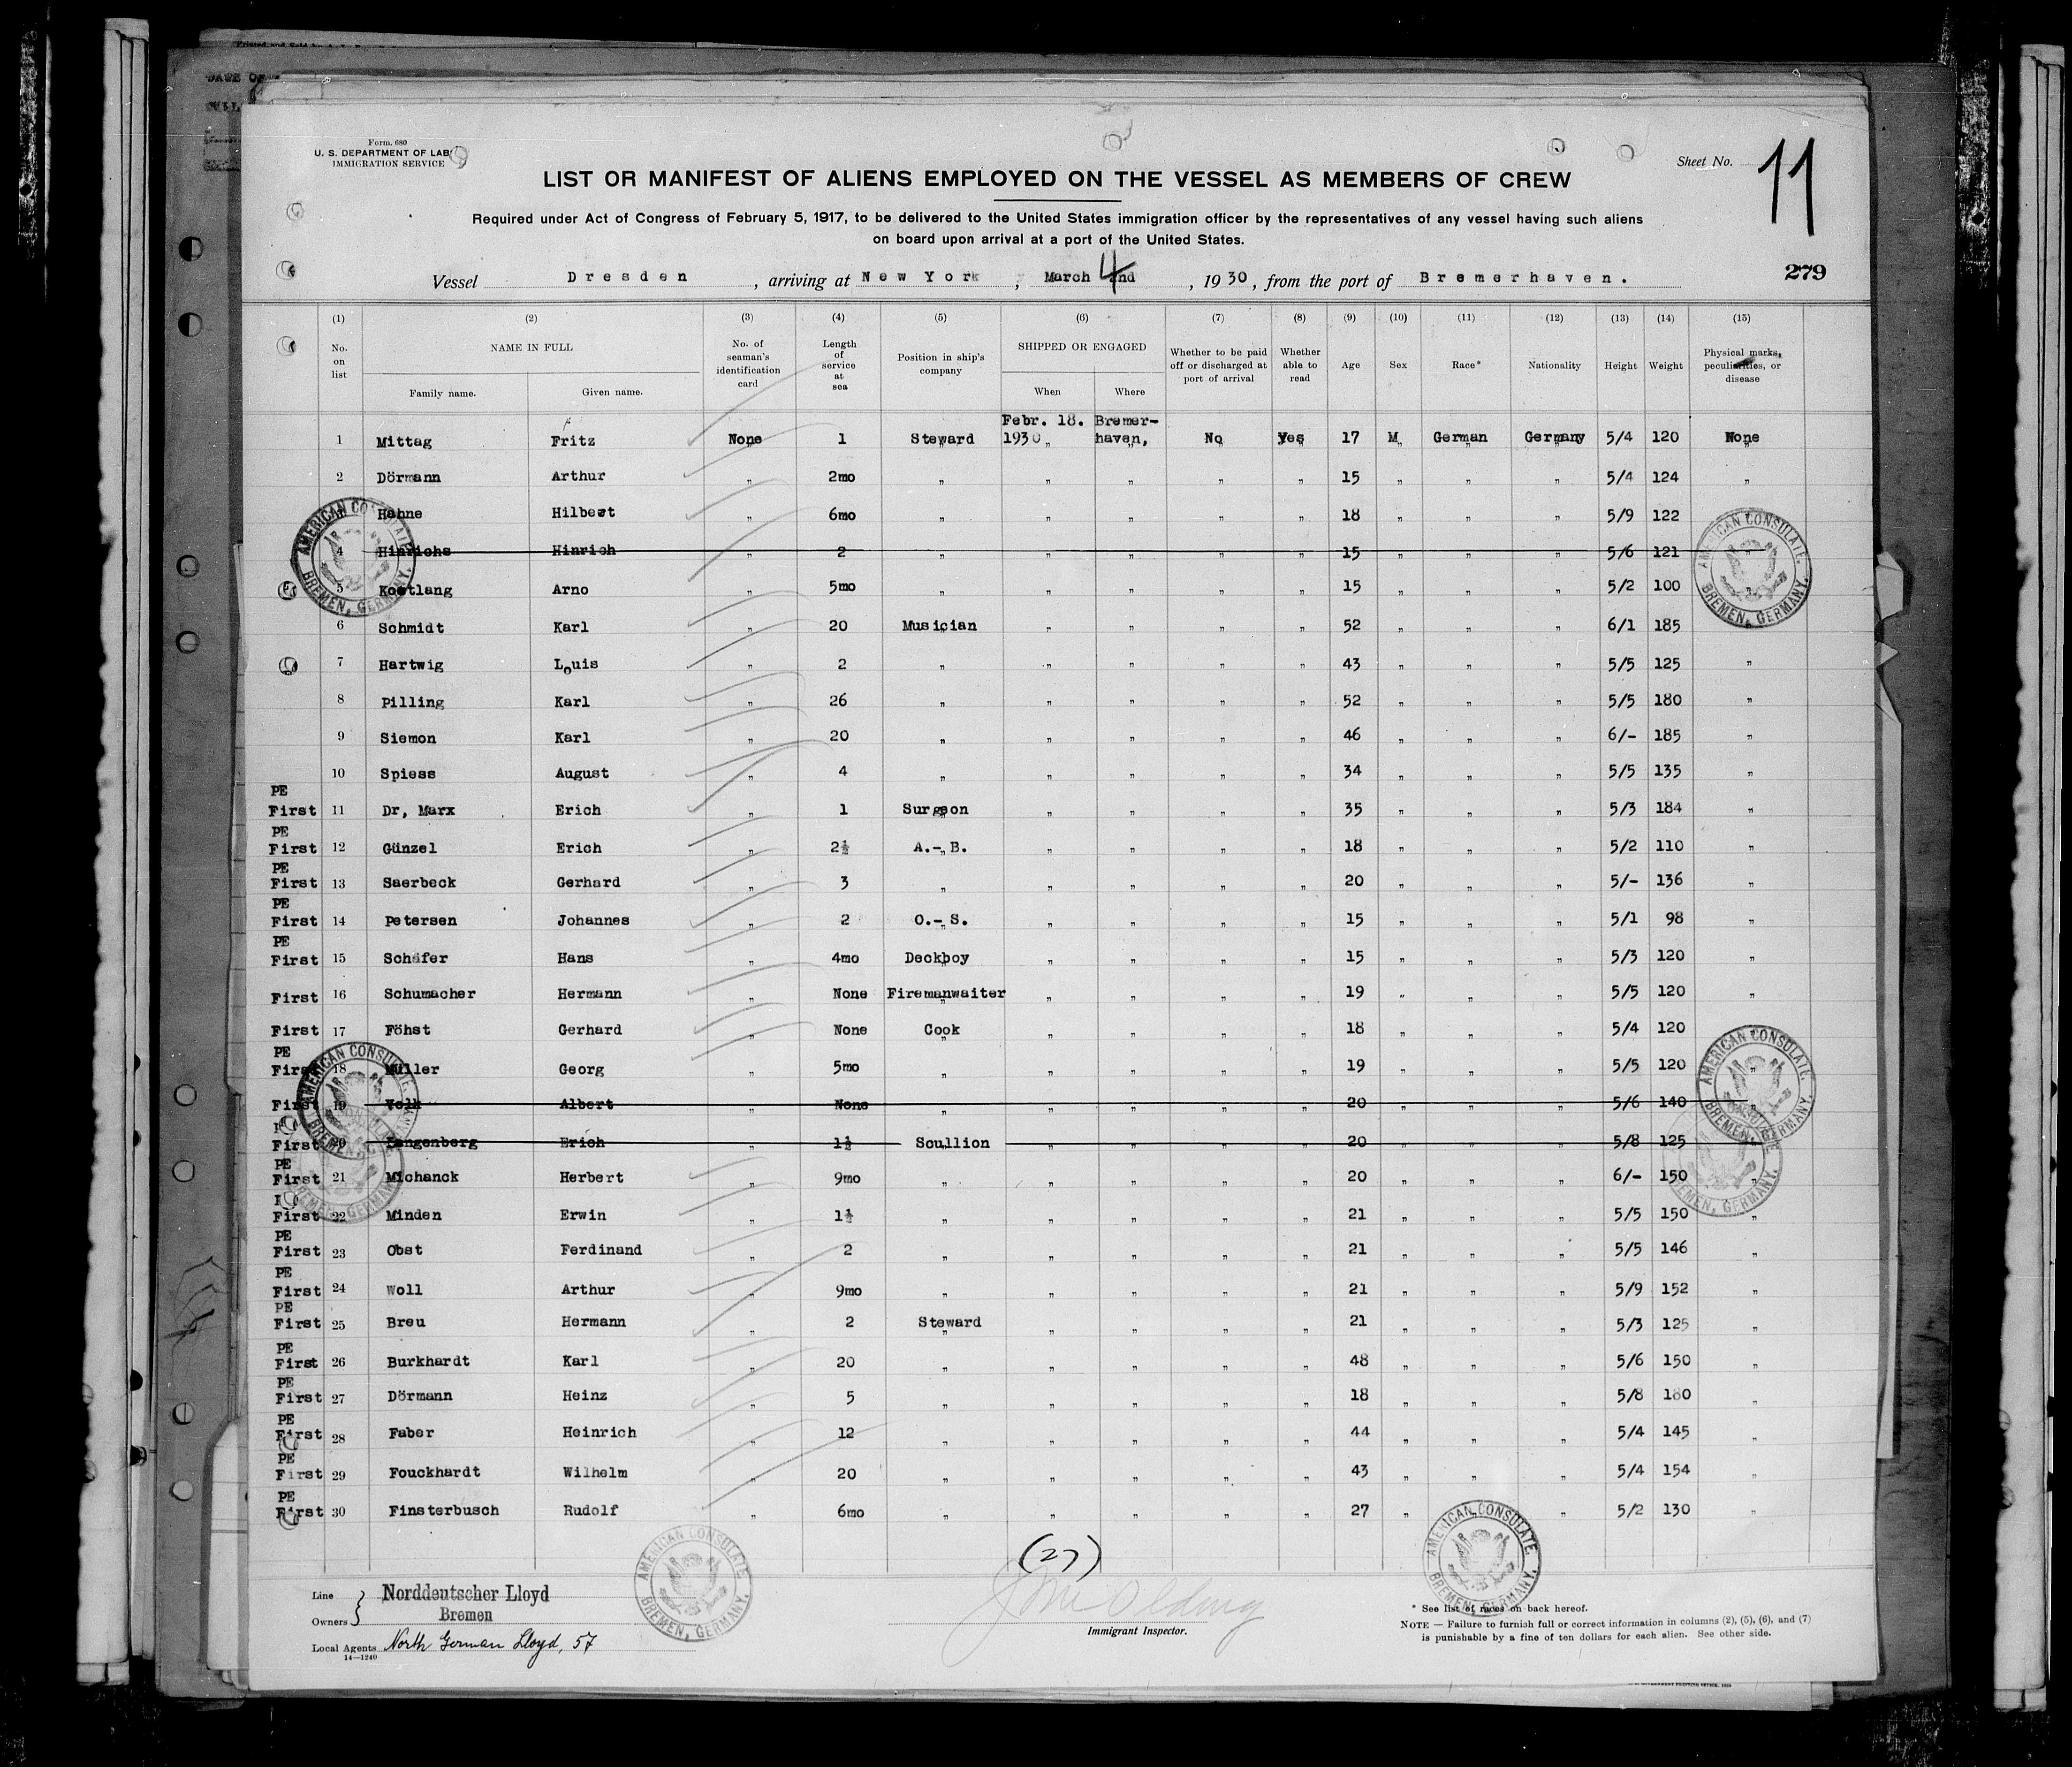 Form. 680
U. S. DEPARTMENT OF LAB
IMMIGRATION SERVICE
Sheet No. 11
LIST OR MANIFEST OF ALIENS EMPLOYED ON THE VESSEL AS MEMBERS OF CREW
Required under Act of Congress of February 5, 1917, to be delivered to the United States immigration officer by the representatives of any vessel having such aliens
on board upon arrival at a port of the United States.
Vessel Dresden, arriving at New York, March 4 nd, 1930, from the port of Bremerhaven. 279
(1) (2) (3) (4) (5) (6) (7) (8) (9) (10) (11) (12) (13) (14) (15)
No. on list NAME IN FULL Family name. Given name. No. of seaman's identification card Length of service at sea Position in ship's company SHIPPED OR ENGAGED When Where Whether to be paid off or discharged at port of arrival Whether able to read Age Sex Race* Nationality Height Weight Physical marks, peculiarities, or disease
Febr. 18. Bremer-
1 Mittag Fritz None 1 Steward 1930 haven, No Yes 17 M German Germany 5/4 120 None
2 Dörmann Arthur " 2mo " " " " " 15 " " " 5/4 124 "
Hehne Hilbert 6mo " " " " " 18 " " " 5/9 122
4 Hinrichs Hinrich " 2 " " " " " 15 " " " 5/6 121
5 Koetlang Arno " 5mo " " " " " 15 " " " 5/2 100
6 Schmidt Karl " 20 Musician " " " " 52 " " " 6/1 185 "
7 Hartwig Louis " 2 " " " " " 43 " " " 5/5 125 "
8 Pilling Karl " 26 " " " " " 52 " " " 5/5 180 "
9 Siemon Karl " 20 " " " " " 46 " " " 6/- 185 "
10 Spiess August " 4 " " " " " 34 " " " 5/5 135 "
PE
First 11 Dr, Marx Erich " 1 Surgeon " " " " 35 " " " 5/3 184 "
PE
First 12 Günzel Erich " 2½ A.-B. " " " " 18 " " " 5/2 110 "
PE
First 13 Saerbeck Gerhard " 3 " " " " " 20 " " " 5/- 136 "
PE
First 14 Petersen Johannes " 2 O.-S. " " " " 15 " " " 5/1 98 "
PE
First 15 Schäfer Hans " 4mo Deckboy " " " " 15 " " " 5/3 120 "
First 16 Schumacher Hermann " None Firemanwaiter " " " " 19 " " " 5/5 120 "
First 17 Föhst Gerhard " None Cook " " " " 18 " " " 5/4 120 "
PE
First 18 Müller Georg " 5mo " " " " " 19 " " " 5/5 120 "
First 19 Volk Albert " None " " " " " 20 " " " 5/6 140 "
First 20 Langenberg Erich " 1½ Scullion " " " " 20 " " " 5/8 125
PE
First 21 Michanck Herbert " 9mo " " " " " 20 " " " 6/- 150 "
First 22 Minden Erwin " 1½ " " " " " 21 " " " 5/5 150 "
PE
First 23 Obst Ferdinand " 2 " " " " " 21 " " " 5/5 146 "
PE
First 24 Woll Arthur " 9mo " " " " " 21 " " " 5/9 152 "
PE
First 25 Breu Hermann " 2 Steward " " " " 21 " " " 5/3 125 "
PE
First 26 Burkhardt Karl " 20 " " " " " 48 " " " 5/6 150 "
PE
First 27 Dörmann Heinz " 5 " " " " " 18 " " " 5/8 180 "
PE
First 28 Faber Heinrich " 12 " " " " " 44 " " " 5/4 145 "
PE
First 29 Fouckhardt Wilhelm " 20 " " " " " 43 " " " 5/4 154 "
PE
First 30 Finsterbusch Rudolf " 6mo " " " " " 27 " " 5/2 130 "
(27)
AMERICAN CONSULATE BREMEN, GERMANY.
AMERICAN CONSULATE BREMEN, GERMANY.
AMERICAN CONSULATE BREMEN, GERMANY.
AMERICAN CONSULATE BREMEN, GERMANY.
AMERICAN CONSULATE BREMEN, GERMANY.
AMERICAN CONSULATE BREMEN, GERMANY.
Line Norddeutscher Lloyd
Owners Bremen
Local Agents North German Lloyd, 57
14—1240
Immigrant Inspector.
* See list of races on back hereof.
NOTE — Failure to furnish full or correct information in columns (2), (5), (6), and (7)
is punishable by a fine of ten dollars for each alien. See other side.